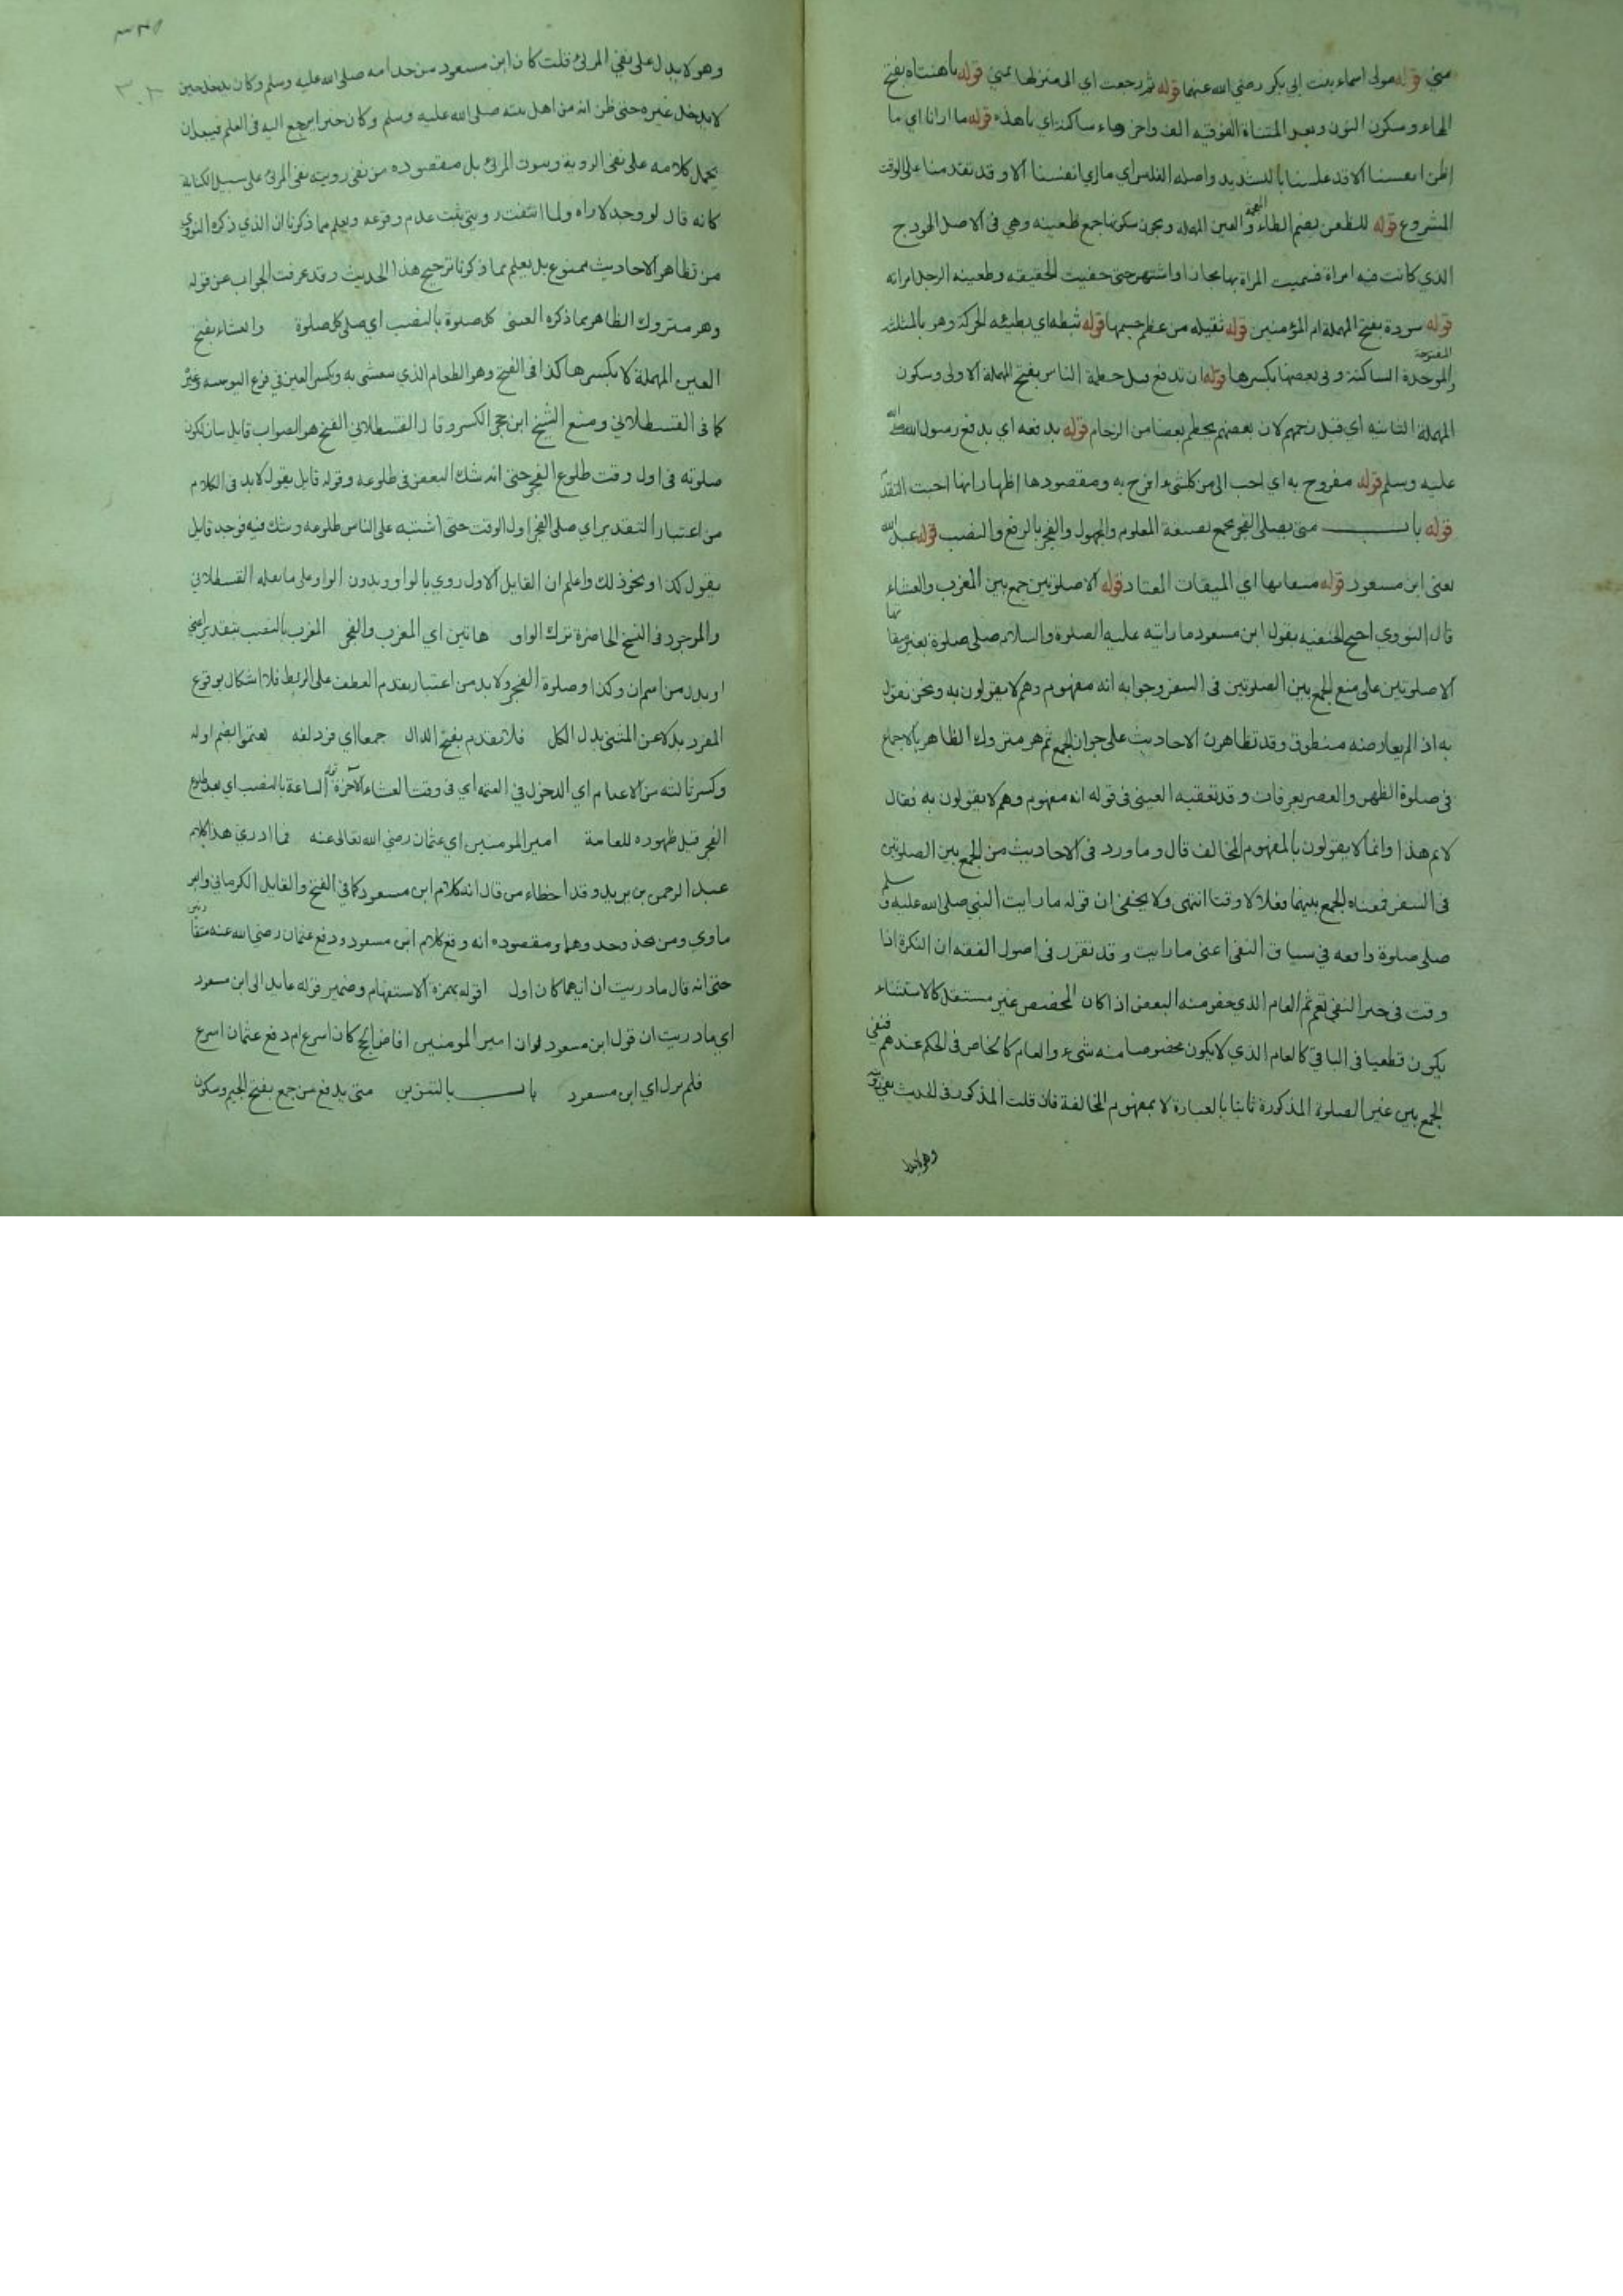 مني قوله مولى اسماء بنت ابي بكر رضي الله عنهما قوله ثم رجعت اي الى منزلها بمني قوله ياهنتاه بفتح
الهاء وسكون النون وبعد المثناة الفوقيه الف واخره هاء ساكنة اي ياهذه قوله ما ارانا اي ما
اظن انفسنا الا قد غلسنا بالتشديد واصله الغلس اي ما اري انفسنا الا وقد تقدمنا على الوقت
المشروع قوله للظعن بضم الظاء المعجمة والعين المهملة ويجوز سكونها جمع ظعينه وهي في الاصل الهودج
الذي كانت فيه امراة فسميت المراة بها مجازا واشتهر حتى خفيت الحقيقه وظعينه الرجل امراته
قوله سودة بفتح المهملة ام المؤمنين قوله ثقيله من عظم جسمها قوله ثبطه اي بطيئه الحركة وهو بالمثلثه
المفتوحة
والموحدة الساكنة وفي بعضها بكسرها قوله ان تدفع قبل حطمة الناس بفتح المهملة الاولى وسكون
المهملة الثانيه اي قبل زحمهم لان بعضهم يحطم بعضا من الزحام قوله بدفعه اي بدفع رسول الله صلى الله
عليه وسلم قوله مفروح به اي احب الى من كل شيء افرح به ومقصودها اظهار انها احبت التقد
قوله باب متى يصلى الفجر بجمع بصيغة المعلوم والمجهول والفجر بالرفع والنصب قوله عبد الله
يعني ابن مسعود قوله ميقاتها اي الميقات المعتاد قوله الا صلوتين جمع بين المغرب والعشاء
قال النووي احتج الحنفيه بقول ابن مسعود ما رايته عليه الصلوة والسلام صلى صلوة بغير ميقاتها
الا صلوتين على منع الجمع بين الصلوتين في السفر وجوابه انه مفهوم وهم لا يقولون به ونحن نقول
به اذا لم يعارضه منطوق وقد تظاهرت الاحاديث على جواز الجمع ثم هو متروك الظاهر بالاجماع
في صلوة الظهر والعصر بعرفات وقد تعقبه العيني في قوله انه مفهوم وهم لا يقولون به فقال
لا نم هذا وانما لا يقولون بالمفهوم المخالف قال وما ورد في الاحاديث من الجمع بين الصلوتين
في السفر فمعناه الجمع بينهما فعلا لا وقتا انتهى ولا يخفى ان قوله ما رايت النبي صلى الله عليه وسلم
صلى صلوة واقعه في سياق النفي اعني ما رايت وقد تقرر في اصول الفقه ان النكرة اذا
وقت في حيز النفي تعم ثم العام الذي خص منه البعض اذا كان المخصص غير مستقل كالاستثناء
يكون قطعيا في الباقي كالعام الذي لا يكون مخصوصا منه شيء والعام كالخاص في الحكم عندهم فنفي
الجمع بين غير الصلوة المذكورة ثابتا بالعبارة لا بمفهوم المخالفة فان قلت المذكور في الحديث نفي رؤيته
وهو لا يدل
٣٠٢
وهو لا يدل على نفي المرئ قلت كان ابن مسعود من خدامه صلى الله عليه وسلم وكان يدخل حين
لا يدخل غيره حتى ظن انه من اهل بيته صلى الله عليه وسلم وكان حبرا يرجع اليه في العلم فيبعد ان
يحمل كلامه على نفي الروية وثبوت المرئ بل مقصوده من نفي رويته نفي المرئ على سبيل الكناية
كانه قال لو وجد لاراه ولما انتفت رويتي ثبت عدم وقوعه ويعلم مما ذكرنا ان الذي ذكره النووي
من تظاهر الاحاديث ممنوع بل يعلم مما ذكرنا ترجيح هذا الحديث وقد عرفت الجواب عن قوله
وهو متروك الظاهر بما ذكره العيني كل صلوة بالنصب اي صلى كل صلوة والعشاء بفتح
العين المهملة لا بكسرها كذا في الفتح وهو الطعام الذي يتعشى به وبكسر العين في فرع اليونينيه وغيره
كما في القسطلاني ومنع الشيخ ابن حجر الكسر وقال القسطلاني الفتح هو الصواب قايل بان تكون
صلوته في اول وقت طلوع الفجر حتى انه شك البعض في طلوعه وقوله قايل يقول لا بد في الكلام
من اعتبار التقدير اي صلى الفجر اول الوقت حتى اشتبه على الناس طلوعه وشك فيه فوجد قايل
يقول كذا ونحو ذلك واعلم ان القايل الاول روي بالواو وبدون الواو على ما نقله القسطلاني
والموجود في النسخ الحاضرة ترك الواو هاتين اي المغرب والفجر المغرب بالنصب بتقدير اعني
او بدل من اسم ان وكذا وصلوة الفجر ولا بد من اعتبار تقدم العطف على الربط فلا اشكال بوقوع
المفرد بدلا عن المثنى بدل الكل فلا تقدم بفتح الدال جمعا اي مزدلفه يعتموا بضم اوله
وكسر ثالثه من الاعتام اي الدخول في العتمه اي في وقت العشاء الآخرة قوله الساعة بالنصب اي بعد طلوع
الفجر قبل ظهوره للعامة امير المومنين اي عثمان رضي الله تعالى عنه فما ادري هذا كلام
عبد الرحمن بن يزيد وقد اخطاء من قال انه كلام ابن مسعود كما في الفتح والقايل الكرماني والبر
ماوي ومن يحذو حذوهما ومقصوده انه وقع كلام ابن مسعود ودفع عثمان رضي الله عنه متقارنين
حتى انه قال ما دريت ان ايهما كان اول اقوله بهمزة الاستفهام وضمير قوله عايد الى ابن مسعود
اي ما دريت ان قول ابن مسعود لو ان امير المومنين افاض الخ كان اسرع ام دفع عثمان اسرع
فلم يزل اي ابن مسعود باب بالتنوين متى يدفع من جمع بفتح الجيم وسكون